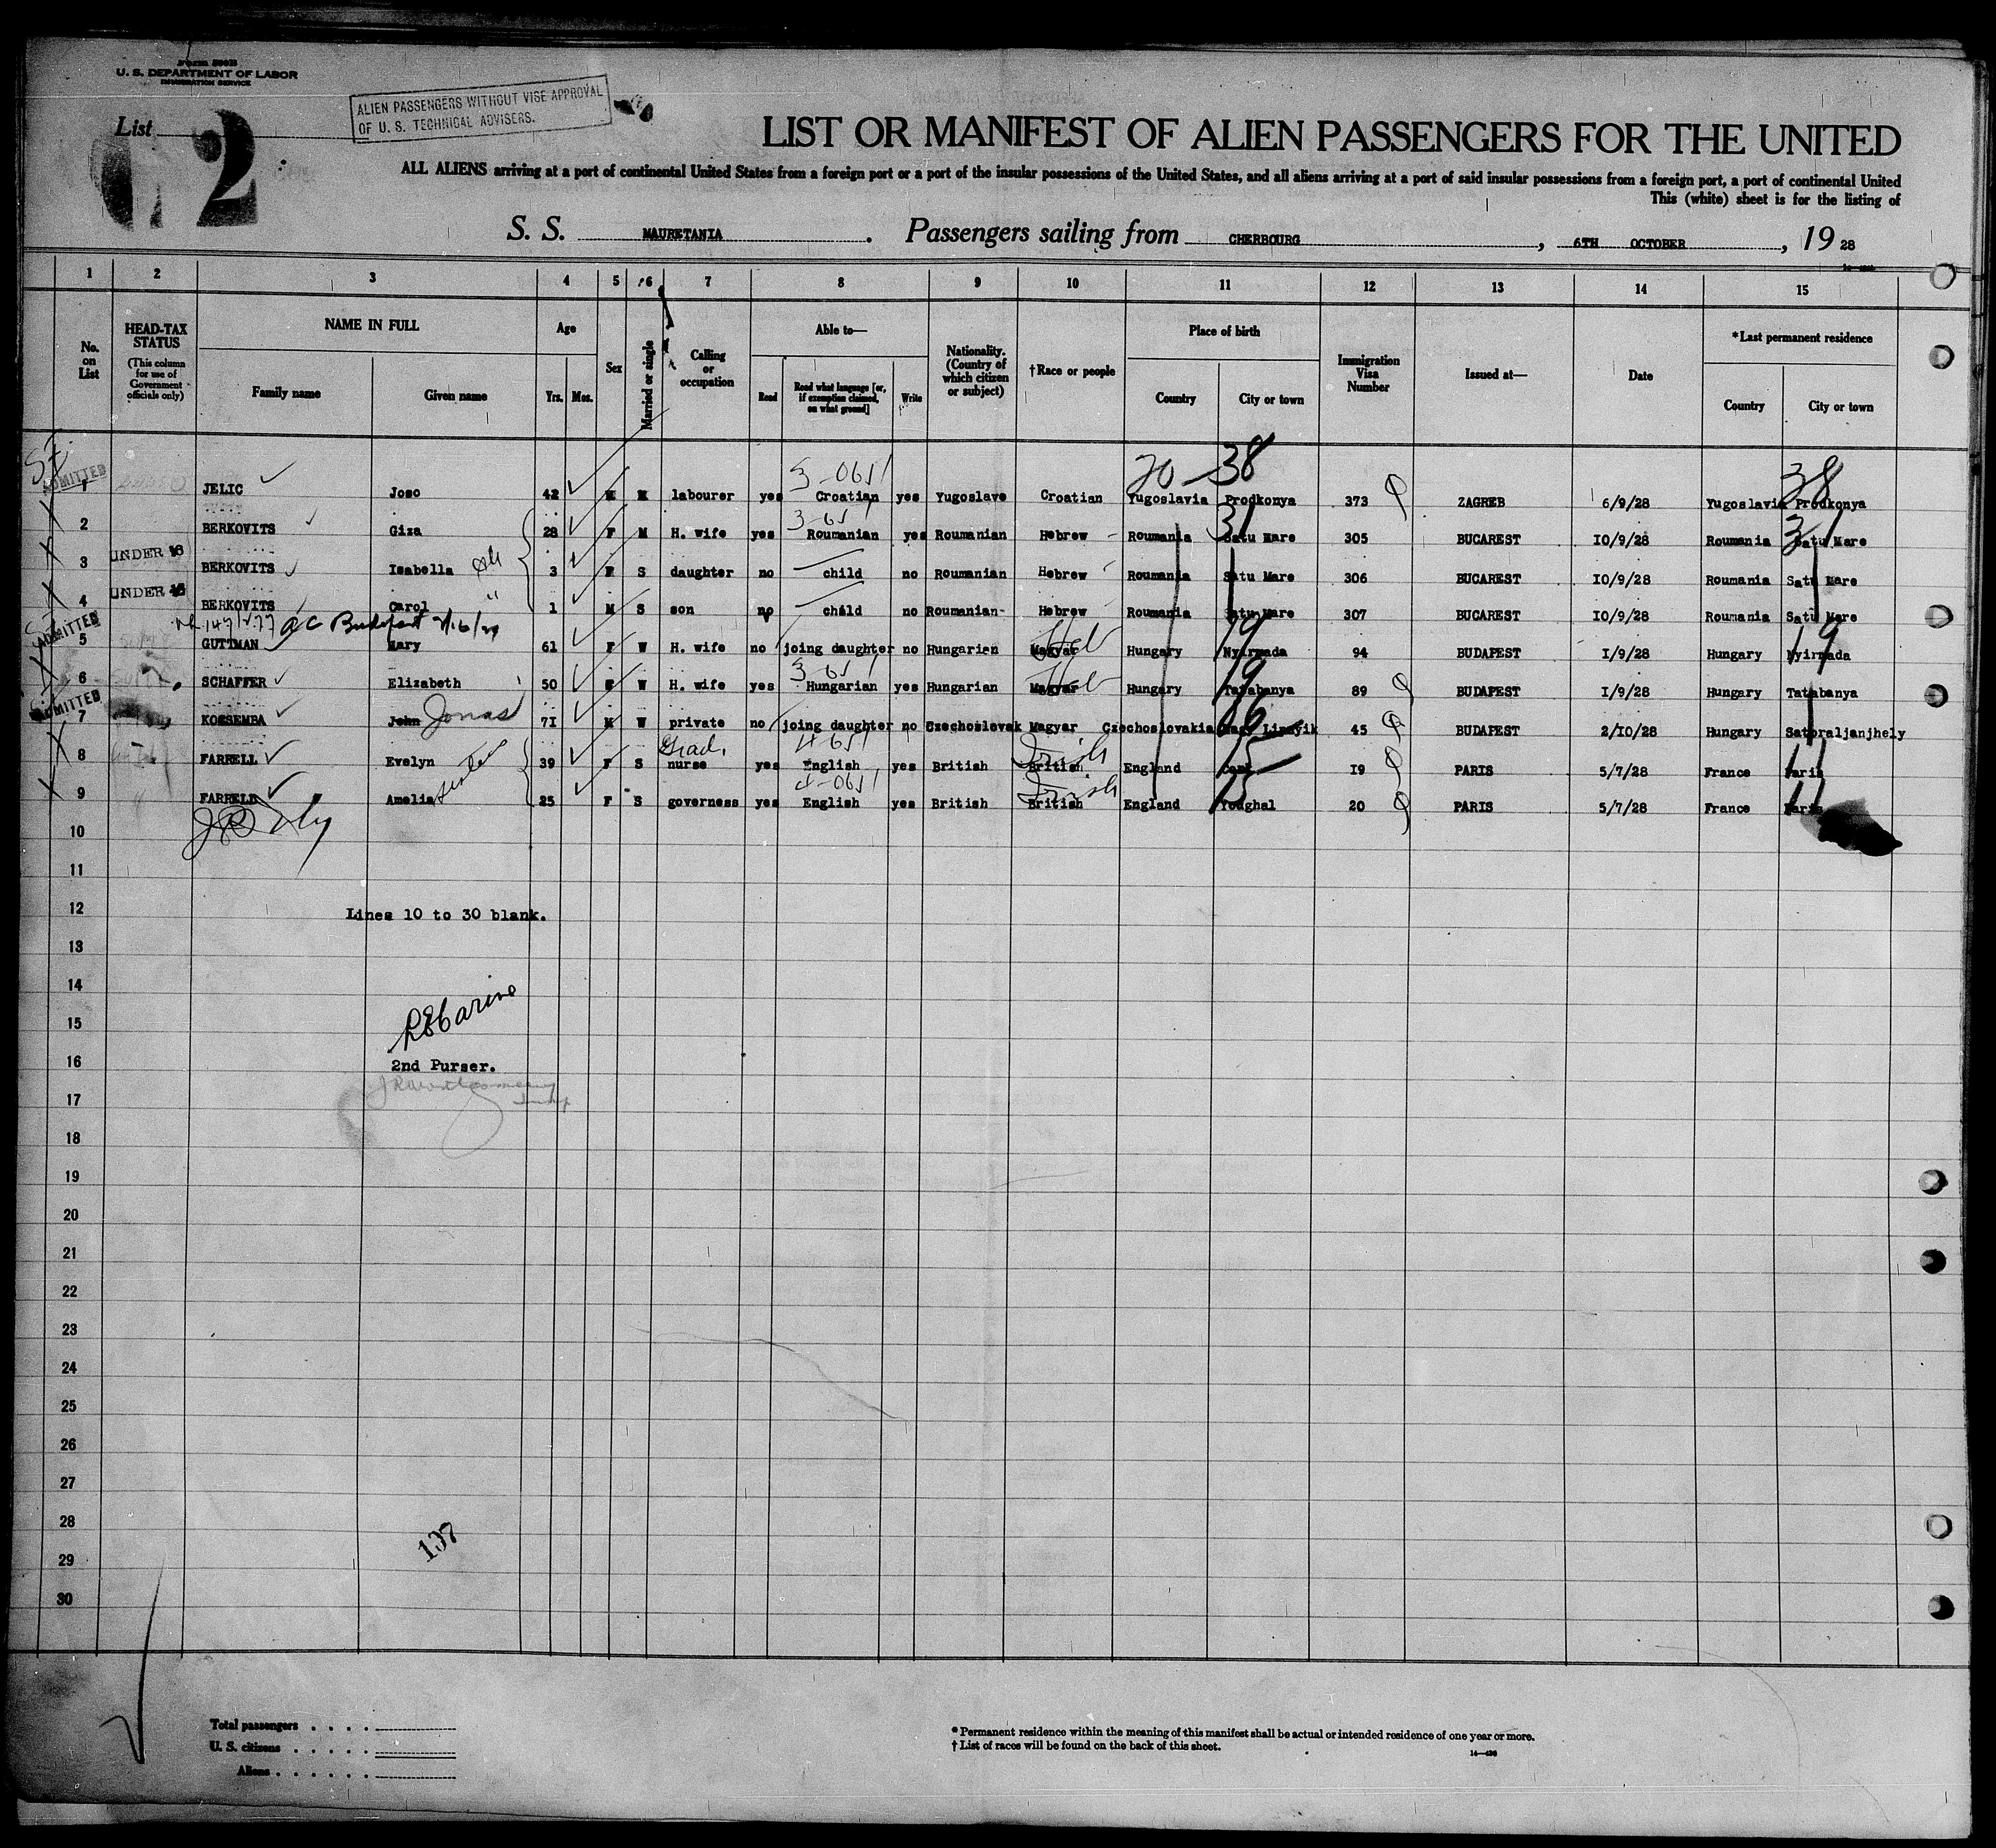 Form 500B
U. S. DEPARTMENT OF LABOR
IMMIGRATION SERVICE
List 2
ALIEN PASSENGERS WITHOUT VISE APPROVAL
OF U. S. TECHNICAL ADVISERS.
LIST OR MANIFEST OF ALIEN PASSENGERS FOR THE UNITED
ALL ALIENS arriving at a port of continental United States from a foreign port or a port of the insular possessions of the United States, and all aliens arriving at a port of said insular possessions from a foreign port, a port of continental United
This (white) sheet is for the listing of
S. S. MAURETANIA. Passengers sailing from CHERBOURG, 6TH OCTOBER, 19 28
1 2 3 4 5 6 7 8 9 10 11 12 13 14 15
No. on List
HEAD-TAX STATUS
(This column for use of Government officials only)
NAME IN FULL
Family name
Given name
Age
Yrs. Mos.
Sex
Married or single
Calling or occupation
Able to—
Read
Read what language [or, if exemption claimed, on what ground]
Write
Nationality. (Country of which citizen or subject)
†Race or people
Place of birth
Country
City or town
Immigration Visa Number
Issued at—
Date
*Last permanent residence
Country
City or town
3-0651 20-38 38
ADMITTED 1 JELIC Joso 42 M M labourer yes Croatian yes Yugoslave Croatian Yugoslavia Prodkonya 373 ZAGREB 6/9/28 Yugoslavia Prodkonya
3-651 31 31
2 BERKOVITS Giza 28 F M H. wife yes Roumanian yes Roumanian Hebrew Roumania Satu Mare 305 BUCAREST 10/9/28 Roumania Satu Mare
3 UNDER 16 BERKOVITS Isabella 3 F S daughter no child no Roumanian Hebrew Roumania Satu Mare 306 BUCAREST 10/9/28 Roumania Satu Mare
4 UNDER 16 BERKOVITS Carol 1 M S son no child no Roumanian Hebrew Roumania Satu Mare 307 BUCAREST 10/9/28 Roumania Satu Mare
19 19
ADMITTED 5 GUTTMAN Mary 61 F W H. wife no joing daughter no Hungarian Magyar Heb Hungary Nyirmada 94 BUDAPEST 1/9/28 Hungary Nyirmada
3-651 19
6 SCHAFFER Elizabeth 50 F W H. wife yes Hungarian yes Hungarian Magyar Heb Hungary Tatabanya 89 BUDAPEST 1/9/28 Hungary Tatabanya
ADMITTED 7 KOSSEMBA John Jonas 71 M W private no joing daughter no Czechoslovak Magyar Czechoslovakia 45 BUDAPEST 2/10/28 Hungary Satoraljanjhely
Grad. 4-651 Irish 15 11
8 FARRELL Evelyn 39 F S nurse yes English yes British British England 19 PARIS 5/7/28 France Paris
sister 4-0651 Irish 15 11
9 FARRELL Amelia 25 F S governess yes English yes British British England Youghal 20 PARIS 5/7/28 France Paris
10
11
12 Lines 10 to 30 blank.
13
14
15
16 2nd Purser.
17
18
19
20
21
22
23
24
25
26
27
28
107
29
30
Total passengers . . . .
U. S. citizens . . . . .
Aliens . . . . . .
* Permanent residence within the meaning of this manifest shall be actual or intended residence of one year or more.
† List of races will be found on the back of this sheet.